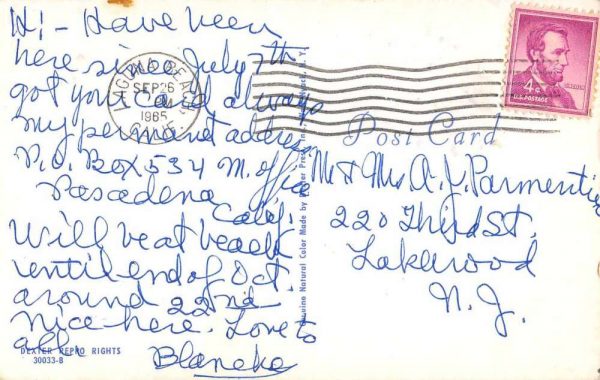 Hi - Have been
here since July 7th
got your card always
my permanet address
P.O. Box 534 M. office
Pasadena
Calif.
Will be at beach
until end of Oct.
around 22nd
nice here. Love to
all.
LAGUNA BEACH,
SEP 26
PM
1965
CALIF.
4¢
U.S. POSTAGE
Post Card
Mr & Mrs A. J. Parmentier
220 Third St.
Lakewood
N. J.
Genuine Natural Color Made by Dexter Press, Inc., West Nyack, N. Y.
DEXTER REPRO RIGHTS
30033-B